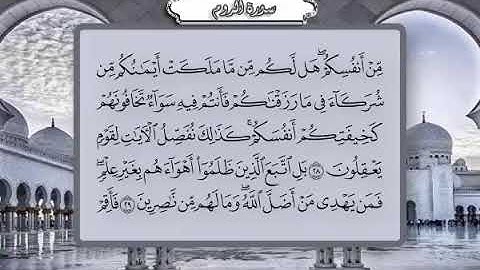 سورة الروم
مِّنْ أَنفُسِكُمْ ۖ هَل لَّكُم مِّن مَّا مَلَكَتْ أَيْمَـٰنُكُم مِّن
شُرَكَآءَ فِى مَا رَزَقْنَـٰكُمْ فَأَنتُمْ فِيهِ سَوَآءٌ تَخَافُونَهُمْ
كَخِيفَتِكُمْ أَنفُسَكُمْ ۚ كَذَٰلِكَ نُفَصِّلُ الْآيَـٰتِ لِقَوْمٍ
يَعْقِلُونَ ﴿٢٨﴾ بَلِ ٱتَّبَعَ ٱلَّذِينَ ظَلَمُوٓا۟ أَهْوَآءَهُم بِغَيْرِ عِلْمٍ ۖ
فَمَن يَهْدِى مَنْ أَضَلَّ ٱللَّهُ ۖ وَمَا لَهُم مِّن نَّـٰصِرِينَ ﴿٢٩﴾ فَأَقِمْ